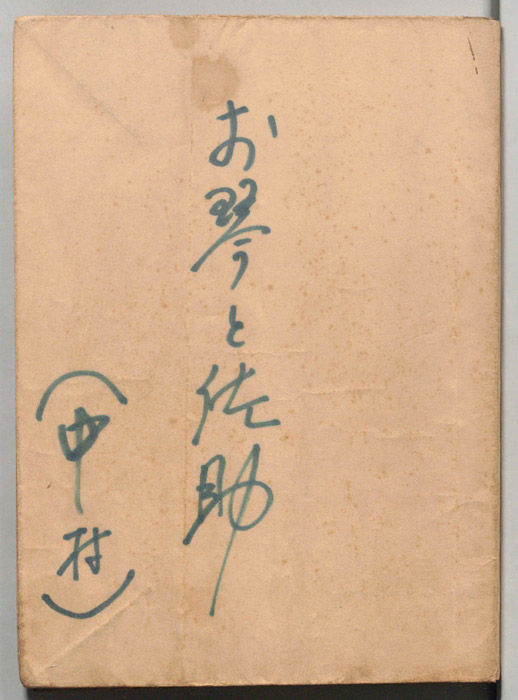 お琴と佐助
(中村)